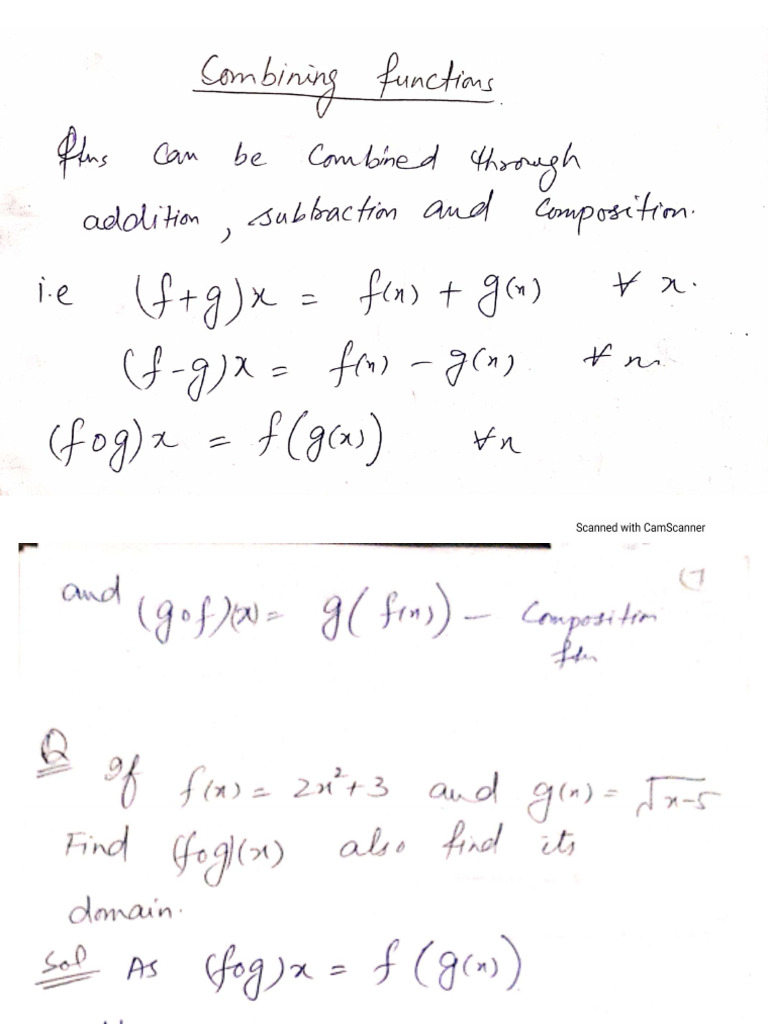 Combining functions.
ftns can be combined through
addition, subtraction and composition.
i.e (f+g)x = f(x) + g(x) ∀ x.
(f-g)x = f(x) - g(x) ∀ x
(fog)x = f(g(x)) ∀x
Scanned with CamScanner
and (gof)(x) = g(f(x)) - Composition
ftn
Q If f(x) = 2x²+3 and g(x) = √x-5
Find (fog)(x) also find its
domain.
Sol As (fog)x = f(g(x))